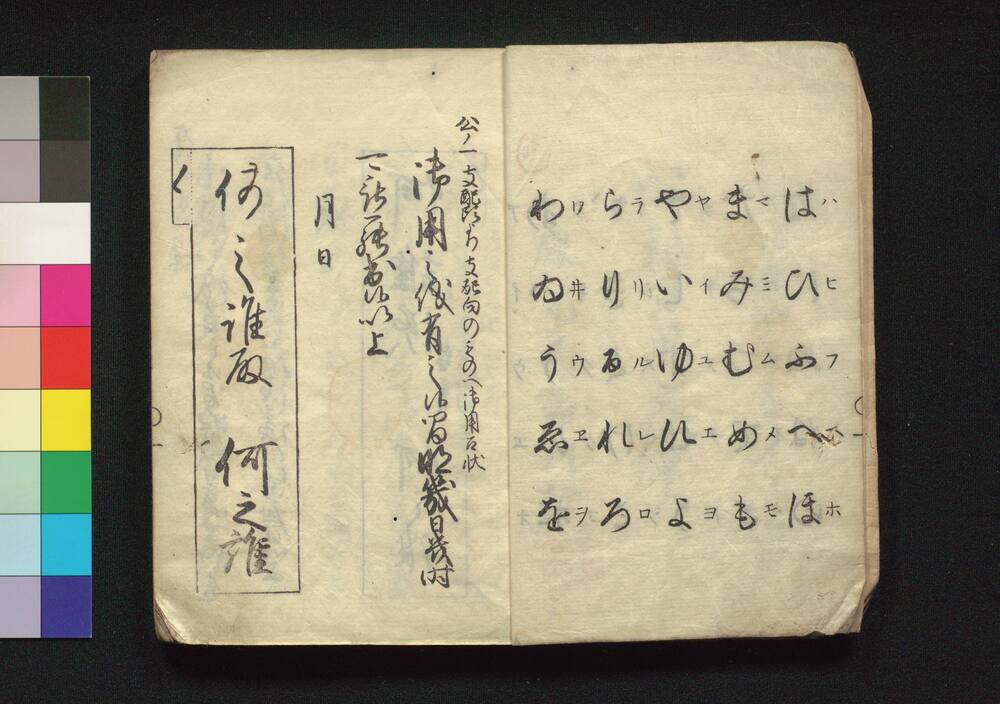 ハヒフヘホ
はひふへほ
マミムメモ
まみむめも
ヤイユエヨ
やいゆえよ
ラリルレロ
らりるれろ
ワヰウヱヲ
わゐうゑを
公ノ一 支配頭ゟ支配向のものへ御用召状
御用之儀有之候間明幾日幾時
可被罷出候以上
月日
何之誰殿 何之誰